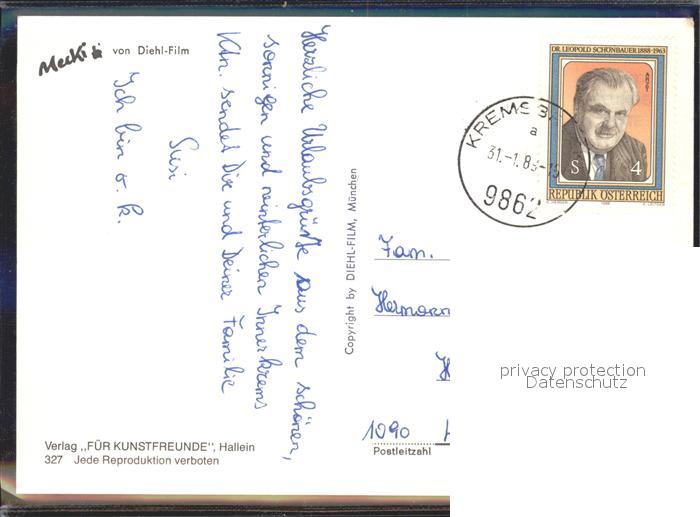 Mecki
von Diehl-Film
Herzliche Urlaubsgrüße aus dem schönen,
sonnigen und winterlichen Innerkrems
Ktn. sendet Dir und Deiner Familie
Susi
Ich bin o. k.
Copyright by DIEHL-FILM, München
DR. LEOPOLD SCHÖNBAUER 1888-1963
ARZT
S 4
REPUBLIK ÖSTERREICH
KREMSB
a
31.-1.89-1
9862
Fam.
Hermann
H
1090
Postleitzahl
privacy protection
Datenschutz
Verlag „FÜR KUNSTFREUNDE", Hallein
327 Jede Reproduktion verboten